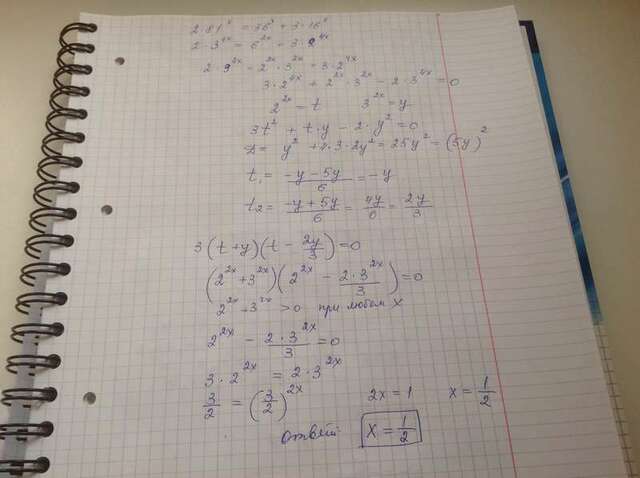 2·81ˣ = 36ˣ + 3·16ˣ
2·3⁴ˣ = 6²ˣ + 3·2⁴ˣ
2·9²ˣ − 2²ˣ·3²ˣ = 3·2⁴ˣ
3·2⁴ˣ + 2²ˣ·3²ˣ − 2·3⁴ˣ = 0
2²ˣ = t 3²ˣ = y
3t² + t·y − 2·y² = 0
D = y² + 4·3·2y² = 25y² = (5y)²
t₁ = (−y − 5y)/6 = −y
t₂ = (−y + 5y)/6 = 4y/6 = 2y/3
3(t + y)(t − 2y/3) = 0
(2²ˣ + 3²ˣ)(2²ˣ − 2·3²ˣ/3) = 0
2²ˣ + 3²ˣ > 0 при любом x
2²ˣ − 2·3²ˣ/3 = 0
3·2²ˣ = 2·3²ˣ
3/2 = (3/2)²ˣ 2x = 1 x = 1/2
Ответ: x = 1/2